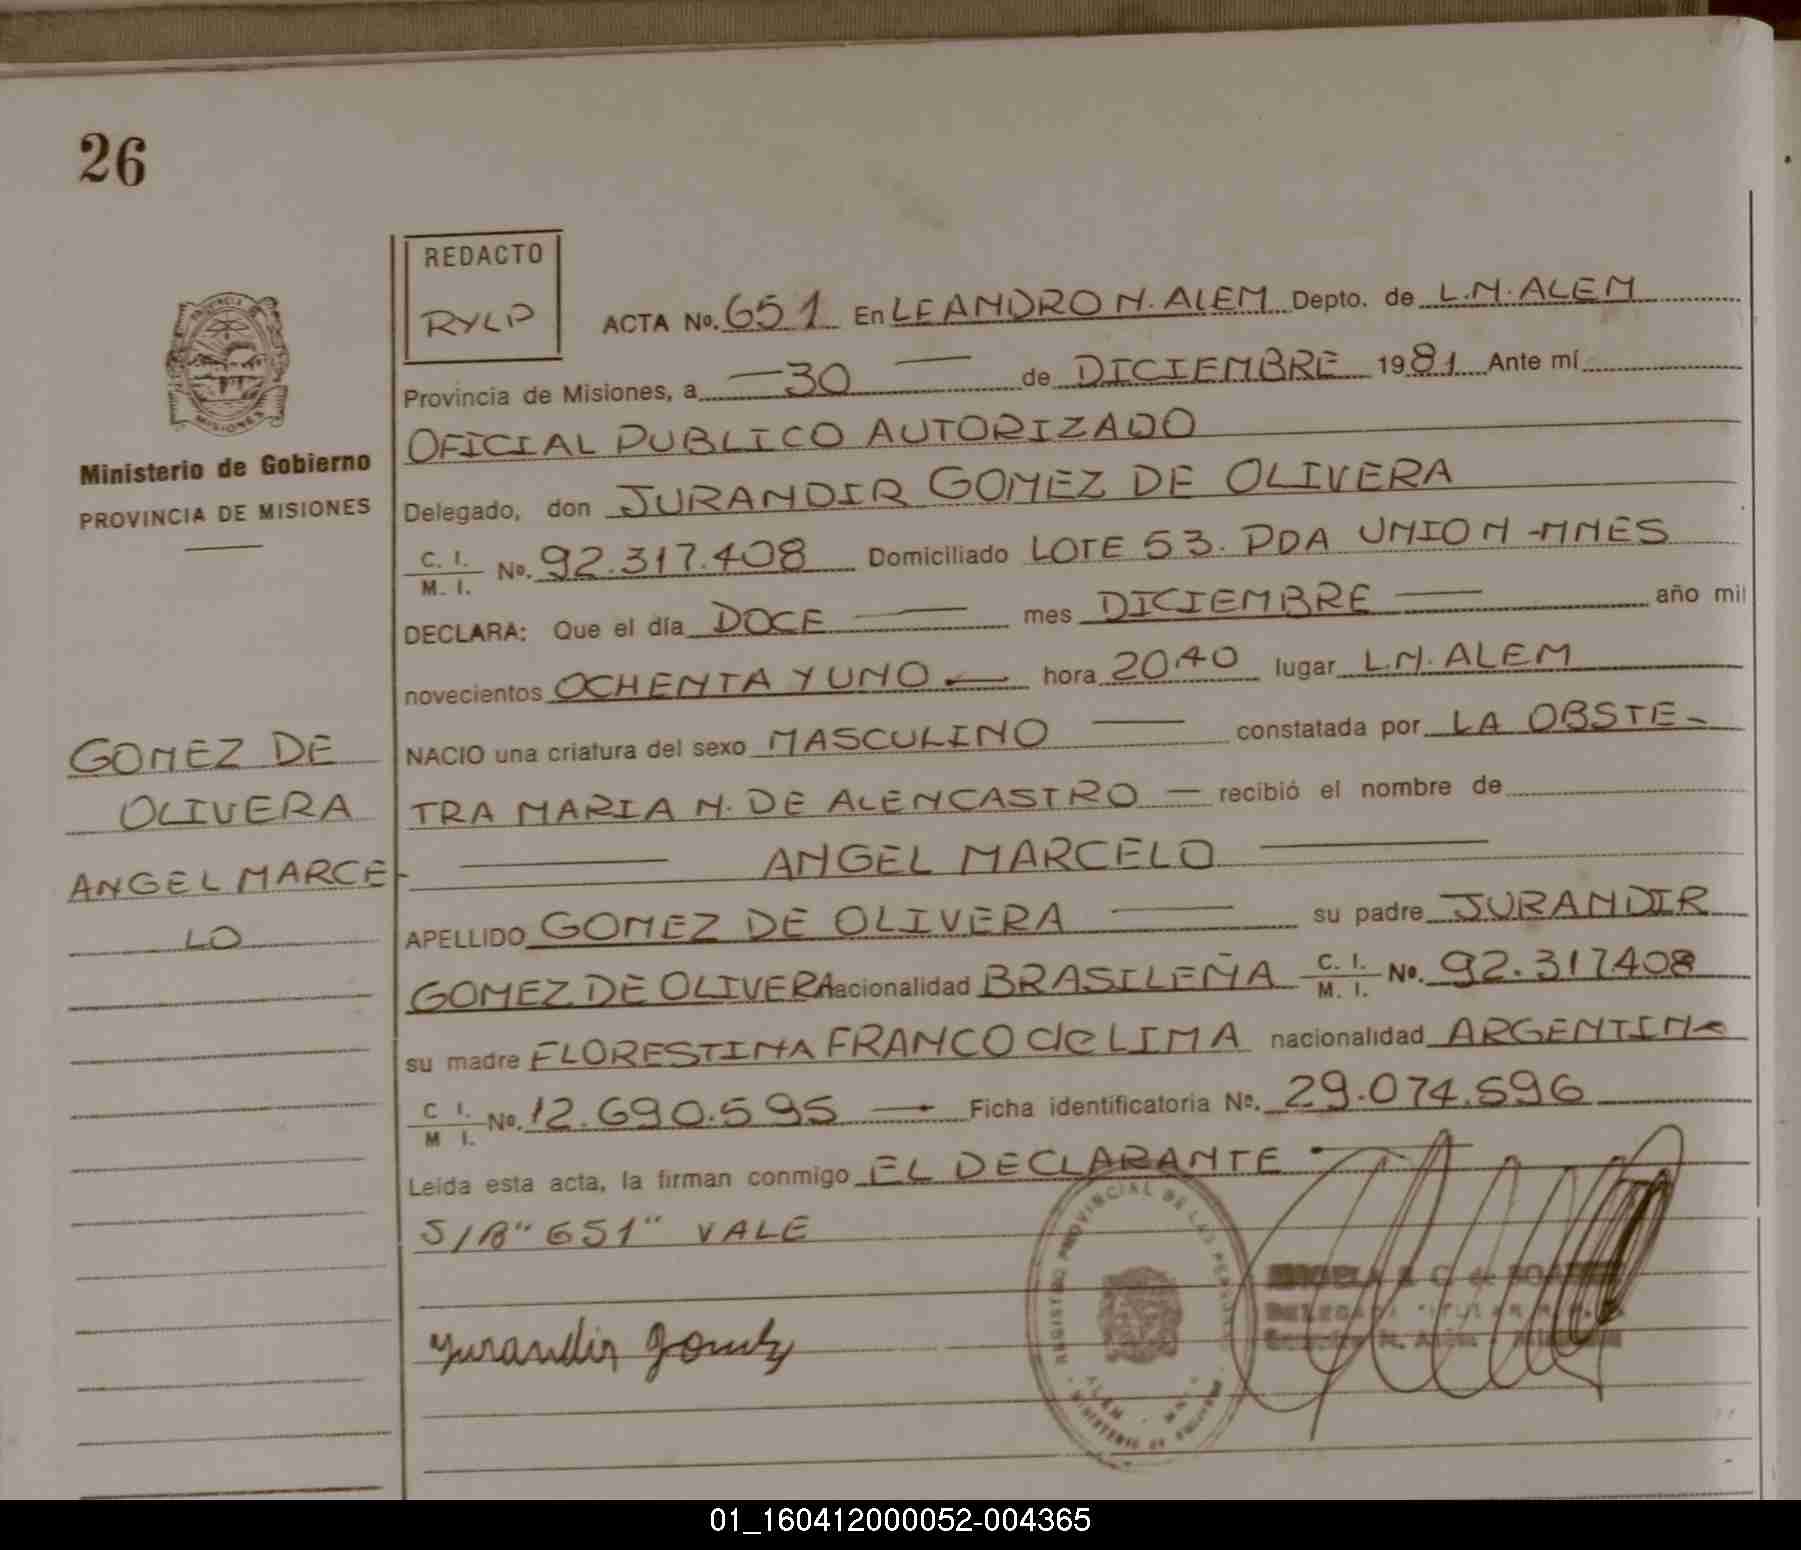 26
REDACTO
RYLP
ACTA No. 651 En LEANDRO N. ALEM Depto. de L.N. ALEM
Provincia de Misiones, a —30— de DICIEMBRE 1981 Ante mí
OFICIAL PUBLICO AUTORIZADO
Delegado, don JURANDIR GOMEZ DE OLIVERA
C. I. / M. I. No. 92.317.408 Domiciliado LOTE 53. PDA UNION -MNES
DECLARA: Que el día DOCE — mes DICIEMBRE — año mil
novecientos OCHENTA Y UNO — hora 20.40 lugar L.N. ALEM
NACIO una criatura del sexo MASCULINO — constatada por LA OBSTE-
TRA MARIA N. DE ALENCASTRO — recibió el nombre de
— ANGEL MARCELO —
APELLIDO GOMEZ DE OLIVERA — su padre JURANDIR
GOMEZ DE OLIVERA nacionalidad BRASILEÑA C. I. / M. I. No. 92.317408
su madre FLORESTINA FRANCO de LIMA nacionalidad ARGENTINA
C I. / M I. No. 12.690.595 — Ficha identificatoria No. 29.074.596
Leída esta acta, la firman conmigo EL DECLARANTE —
S/B "651" VALE
Jurandir Gomez
REGISTRO PROVINCIAL DE LAS PERSONAS
MINISTERIO DE GOBIERNO
ALEM - MNES
PROVINCIA
MISIONES
Ministerio de Gobierno
PROVINCIA DE MISIONES
GOMEZ DE
OLIVERA
ANGEL MARCE-
LO
01_160412000052-004365